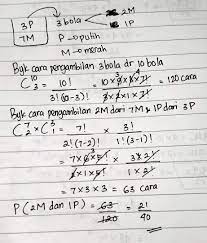 3P
7M
3 bola
2M
1P
P → putih
M → merah
Byk cara pengambilan 3 bola dr 10 bola
C₃¹⁰ = 10! / 3!(10-3)! = 10 x 9 x 8 x 7! / 3 x 2 x 1 x 7! = 120 cara
Byk cara pengambilan 2M dari 7M & 1P dari 3P
C₂⁷ x C₁³ = 7! / 2!(7-2)! x 3! / 1!(3-1)!
= 7 x 6 x 5! / 2 x 1 x 5! x 3 x 2! / 1 x 2!
= 7 x 3 x 3 = 63 cara
P (2M dan 1P) = 63 / 120 = 21 / 40